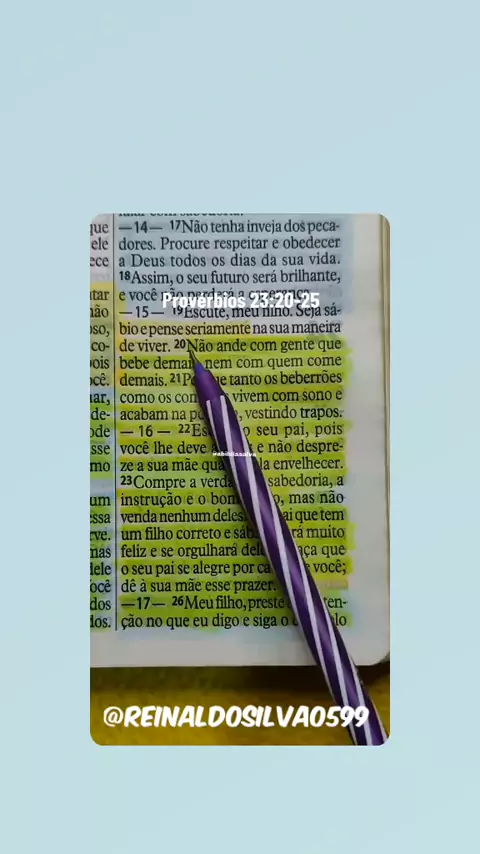 que
ele
ece
tar
não
so,
co-
ois
cê.
ar,
de-
ode
sse
mo
um
ssa
rve.
nas
dele
ocê
dos
dos.
—14— 17Não tenha inveja dos peca-
dores. Procure respeitar e obedecer
a Deus todos os dias da sua vida.
18Assim, o seu futuro será brilhante,
e você não perderá a esperança.
Provérbios 23:20-25
—15— 19Escute, meu filho. Seja sá-
bio e pense seriamente na sua maneira
de viver. 20Não ande com gente que
bebe demais, nem com quem come
demais. 21Po e tanto os beberrões
como os com vivem com sono e
acabam na po , vestindo trapos.
— 16 — 22Es o seu pai, pois
você lhe deve a e não despre-
ze a sua mãe qua la envelhecer.
@abibliasalva
23Compre a verda sabedoria, a
instrução e o bom o, mas não
venda nenhum deles. ai que tem
um filho correto e sáb rá muito
feliz e se orgulhará dele aça que
o seu pai se alegre por ca e você;
dê à sua mãe esse prazer.
—17— 26Meu filho, preste ten-
ção no que eu digo e siga o e lo
@REINALDOSILVA0599